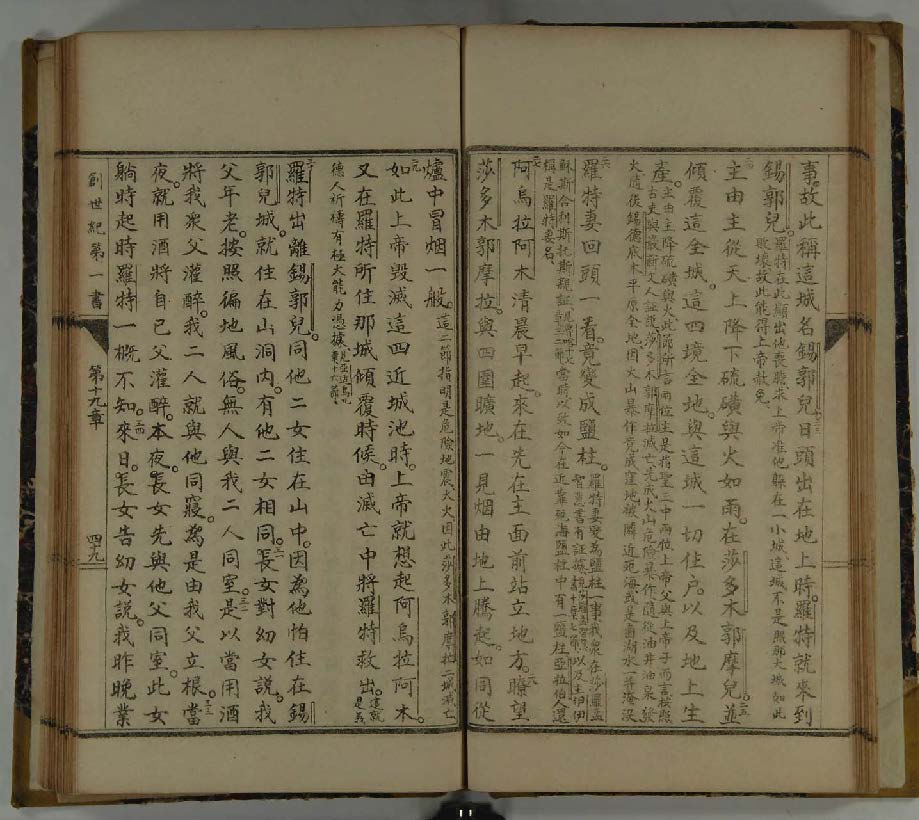 事。故此稱這城名錫郭兒。二三日頭出在地上時。羅特就來到
錫郭兒。羅特在此顯出他喪膽。求上帝准他躲在一小城。這城不是照那大城如此
敗壞故此能得上帝赦免。
二四主由主從天上降下硫磺與火如雨。在莎多木郭摩兒。並二五
傾覆這全城。這四境全地。與這城一切住戶。以及地上生
產。主由主降硫磺與火此節所言兩位主是指聖三中兩位上帝父與上帝子而言按照
古史與最新文人証說莎多木郭摩拉滅亡先尤火山危險暴作隨從油井油泉發
火過後錫德底木平原全地因火山暴作旁成窪地被隣近死海或是鹵湖水奔淹沒
二六羅特妻回頭一看。竟變成鹽柱。羅特妻變為鹽柱一事我眾在莎羅孟
智慧書有証據以及主伊伊
穌斯合利斯托斯親証當時以致如今在近靠死海鹽柱中有一鹽柱亞拉伯人還
稱是羅特妻名。
二七阿烏拉阿木清晨早起。來在先在主面前站立地方。二八瞭望
莎多木郭摩拉。與四圍曠地。一見烟由地上騰起。如同從
爐中冒烟一般。這二節指明是危險地震。大火因此莎多木郭摩拉二城滅亡
二九如此上帝毀滅這四近城池時。上帝就想起阿烏拉阿木。
又在羅特所住那城傾覆時候。由滅亡中將羅特救出。這就是義
德人祈禱有極大能力憑據
三十羅特出離錫郭兒。同他二女住在山中。因為他怕住在錫
郭兒城。就住在山洞內。有他二女相同。三一長女對幼女說。我
父年老。按照徧地風俗。無人與我二人同室。三二是以當用酒
將我眾父灌醉。我二人就與他同寢。為是由我父立根。三三當
夜。就用酒將自己父灌醉。本夜。長女先與他父同室。此女
躺時起時羅特一概不知。三四來日。長女告幼女說。我昨晚業
創世紀第一書
第十九章
四九